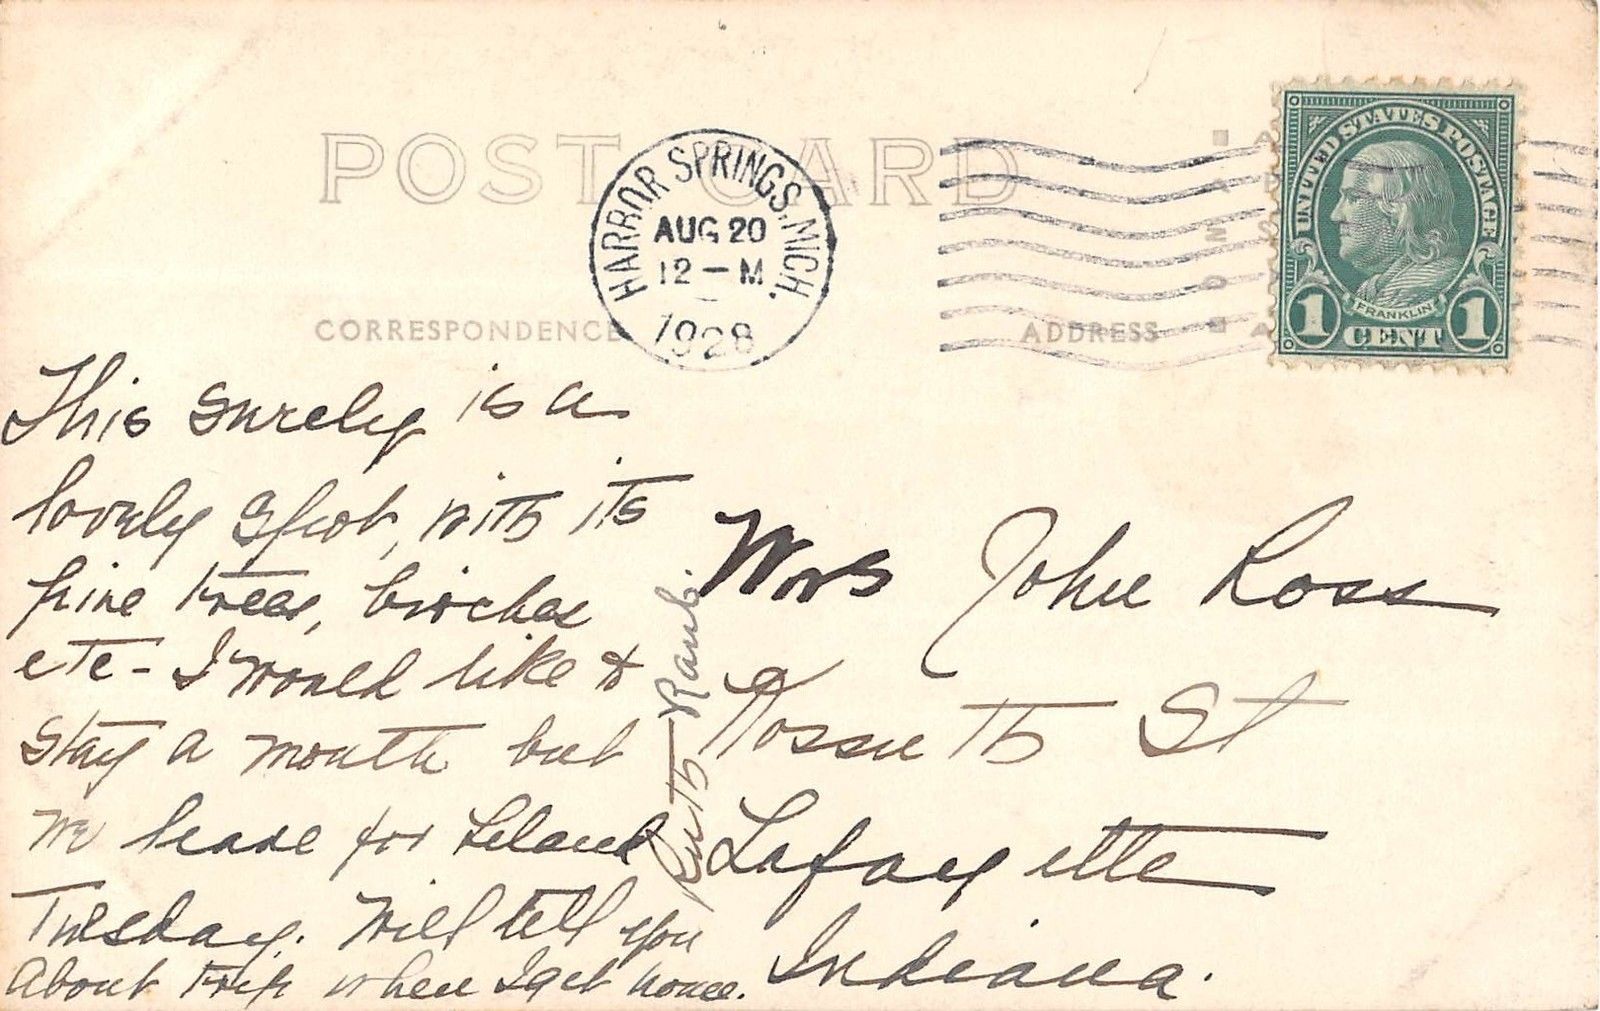 POST CARD
HARBOR SPRINGS, MICH.
AUG 20
12 – M
1928
UNITED STATES POSTAGE
FRANKLIN
1 CENT 1
CORRESPONDENCE
ADDRESS
This surely is a
lovely spot, with its
pine trees, birches
etc - I would like to
stay a month but
we leave for Leland
Tuesday. Will tell you
about trip when I get home.
Ruth Raub.
Mrs John Ross
Kossuth St
Lafayette
Indiana.